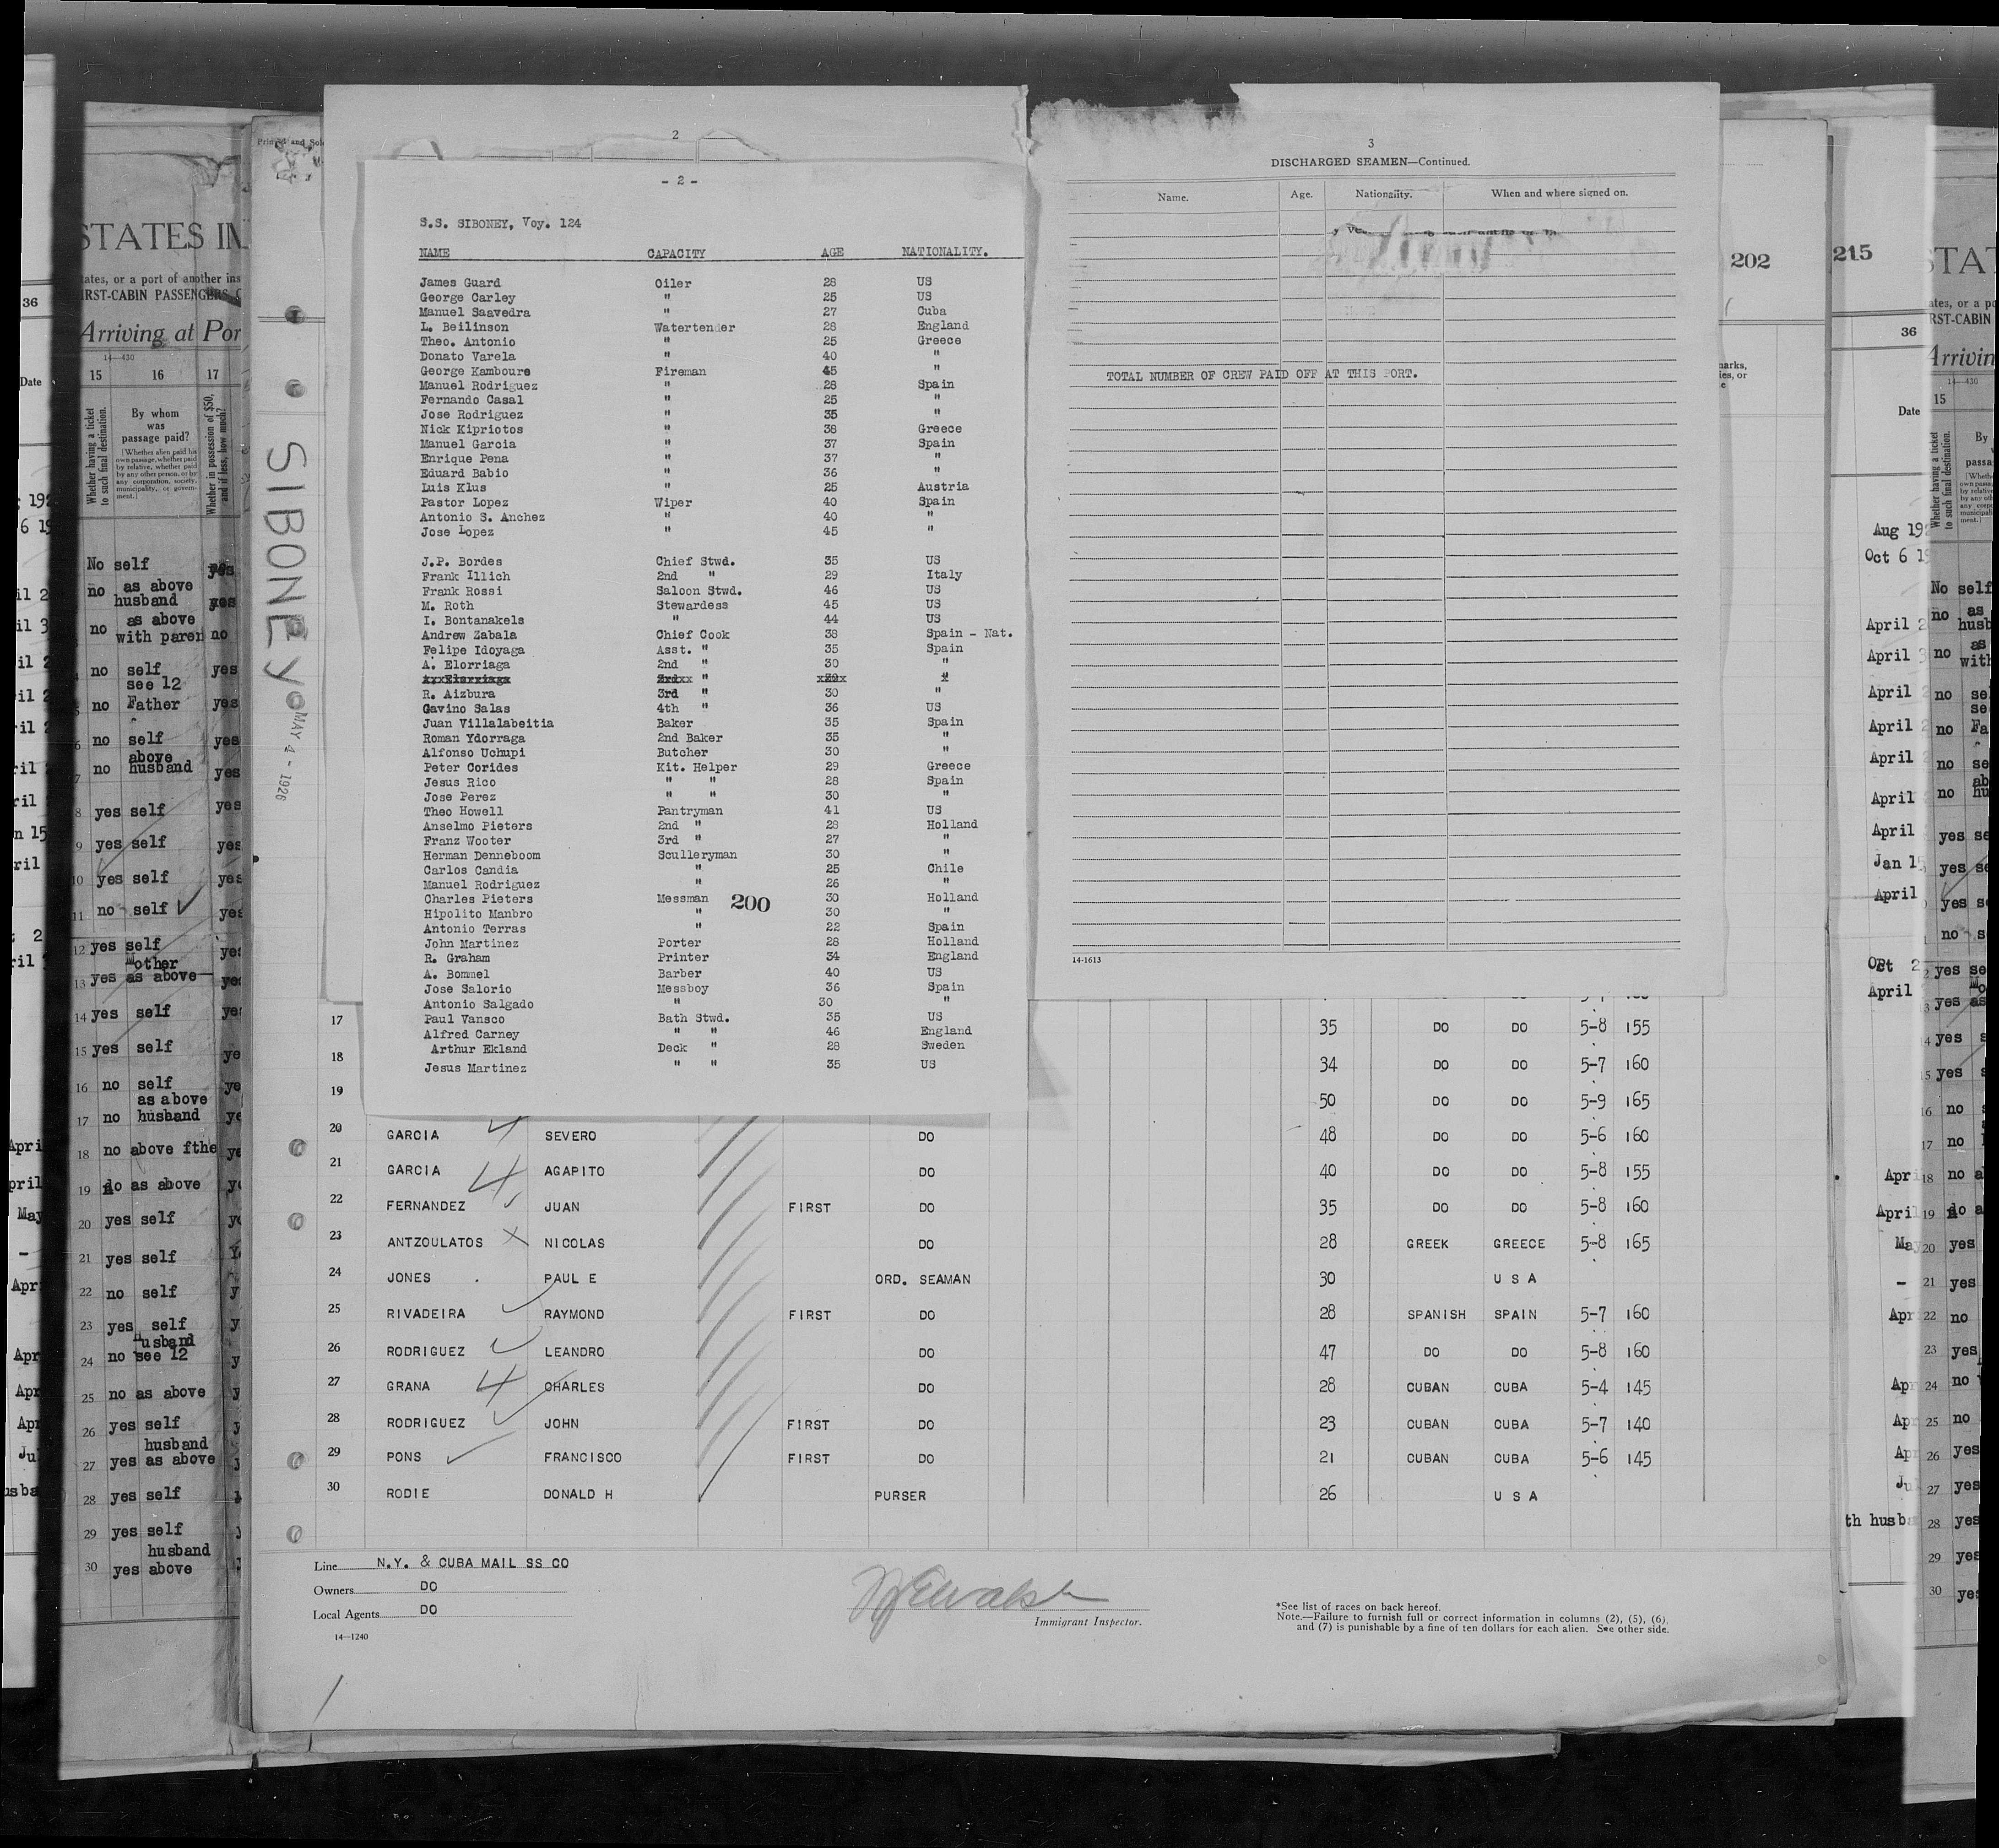 2
- 2 -
S.S. SIBONEY, Voy. 124
NAME CAPACITY AGE NATIONALITY.
James Guard Oiler 28 US
George Carley " 25 US
Manuel Saavedra " 27 Cuba
L. Beilinson Watertender 28 England
Theo. Antonio " 25 Greece
Donato Varela " 40 "
George Kamboure Fireman 45 "
Manuel Rodriguez " 28 Spain
Fernando Casal " 25 "
Jose Rodriguez " 35 "
Nick Kipriotos " 38 Greece
Manuel Garcia " 37 Spain
Enrique Pena " 37 "
Eduard Babio " 36 "
Luis Klus " 25 Austria
Pastor Lopez Wiper 40 Spain
Antonio S. Anchez " 40 "
Jose Lopez " 45 "
J.P. Bordes Chief Stwd. 35 US
Frank Illich 2nd " 29 Italy
Frank Rossi Saloon Stwd. 46 US
M. Roth Stewardess 45 US
I. Bontanakels " 44 US
Andrew Zabala Chief Cook 38 Spain - Nat.
Felipe Idoyaga Asst. " 35 Spain
A. Elorriaga 2nd " 30 "
R. Aizbura 3rd " 30 "
Gavino Salas 4th " 36 US
Juan Villalabeitia Baker 35 Spain
Roman Ydorraga 2nd Baker 35 "
Alfonso Uchupi Butcher 30 "
Peter Corides Kit. Helper 29 Greece
Jesus Rico " " 28 Spain
Jose Perez " " 30 "
Theo Howell Pantryman 41 US
Anselmo Pieters 2nd " 28 Holland
Franz Wooter 3rd " 27 "
Herman Denneboom Sculleryman 30 "
Carlos Candia " 25 Chile
Manuel Rodriguez " 26 "
Charles Pieters Messman 200 30 Holland
Hipolito Manbro " 30 "
Antonio Terras " 22 Spain
John Martinez Porter 28 Holland
R. Graham Printer 34 England
A. Bommel Barber 40 US
Jose Salorio Messboy 36 Spain
Antonio Salgado " 30 "
Paul Vansco Bath Stwd. 35 US
Alfred Carney " " 46 England
Arthur Ekland Deck " 28 Sweden
Jesus Martinez " " 35 US
3
DISCHARGED SEAMEN—Continued.
Name. Age. Nationality. When and where signed on.
TOTAL NUMBER OF CREW PAID OFF AT THIS PORT.
14-1613
202
215
SIBONEY
MAY 4 - 1926
17 35 DO DO 5-8 155
18 34 DO DO 5-7 160
19 50 DO DO 5-9 165
20 GARCIA SEVERO DO 48 DO DO 5-6 160
21 GARCIA AGAPITO DO 40 DO DO 5-8 155
22 FERNANDEZ JUAN FIRST DO 35 DO DO 5-8 160
23 ANTZOULATOS NICOLAS DO 28 GREEK GREECE 5-8 165
24 JONES PAUL E ORD. SEAMAN 30 U S A
25 RIVADEIRA RAYMOND FIRST DO 28 SPANISH SPAIN 5-7 160
26 RODRIGUEZ LEANDRO DO 47 DO DO 5-8 160
27 GRANA CHARLES DO 28 CUBAN CUBA 5-4 145
28 RODRIGUEZ JOHN FIRST DO 23 CUBAN CUBA 5-7 140
29 PONS FRANCISCO FIRST DO 21 CUBAN CUBA 5-6 145
30 RODIE DONALD H PURSER 26 U S A
Line N.Y. & CUBA MAIL SS CO
Owners DO
Local Agents DO
14—1240
Immigrant Inspector.
*See list of races on back hereof.
Note.—Failure to furnish full or correct information in columns (2), (5), (6), and (7) is punishable by a fine of ten dollars for each alien. See other side.
Arriving at Por
14—430
15 16 17
Whether having a ticket to such final destination.
By whom was passage paid?
[Whether alien paid his own passage, whether paid by relative, whether paid by any other person, or by any corporation, society, municipality, or government.]
Whether in possession of $50, and if less, how much?
No self yes
no as above husband yes
no as above with paren no
no self see 12 yes
no Father yes
no self yes
no above husband yes
8 yes self yes
9 yes self yes
10 yes self yes
11 no self yes
12 yes self
13 yes Mother as above
14 yes self
15 yes self
16 no self
17 no as above husband
18 no above fthe
19 do as above
20 yes self
21 yes self
22 no self
23 yes self
24 no Husband see 12
25 no as above
26 yes self
27 yes husband as above
28 yes self
29 yes self
30 yes husband above
36
Date